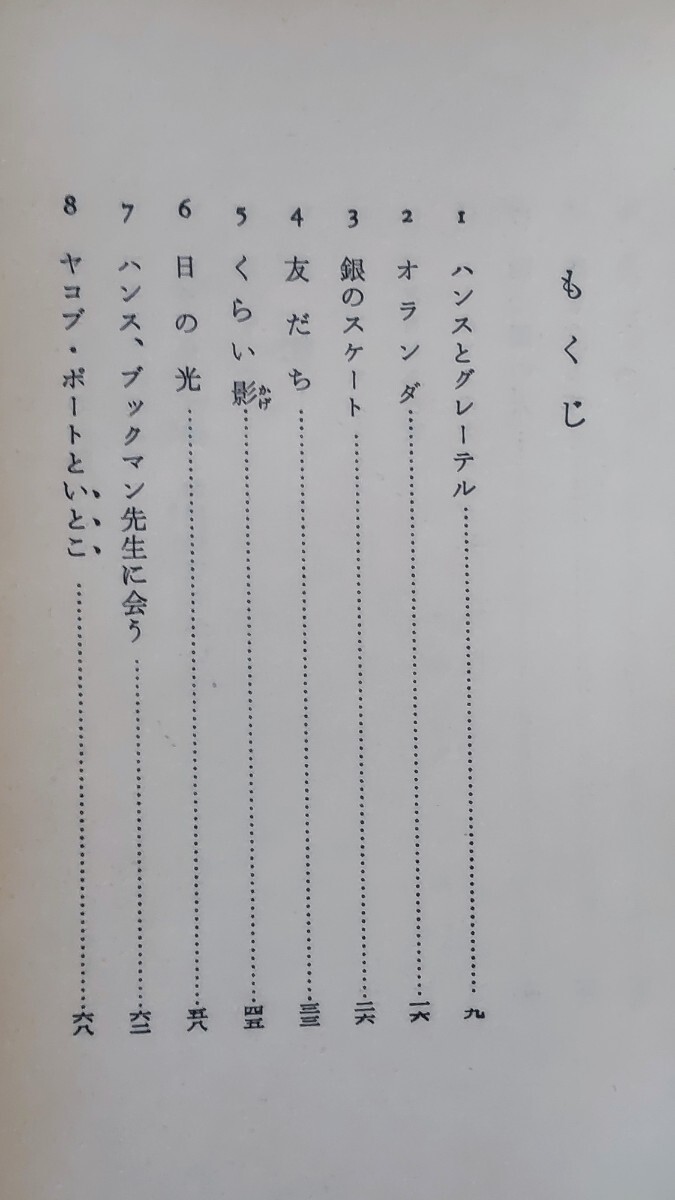 もくじ
1 ハンスとグレーテル……九
2 オランダ……一六
3 銀のスケート……二六
4 友だち……三三
5 くらい影……四五
かげ
6 日の光……五八
7 ハンス、ブックマン先生に会う……六二
8 ヤコブ・ポートといとこ……六八